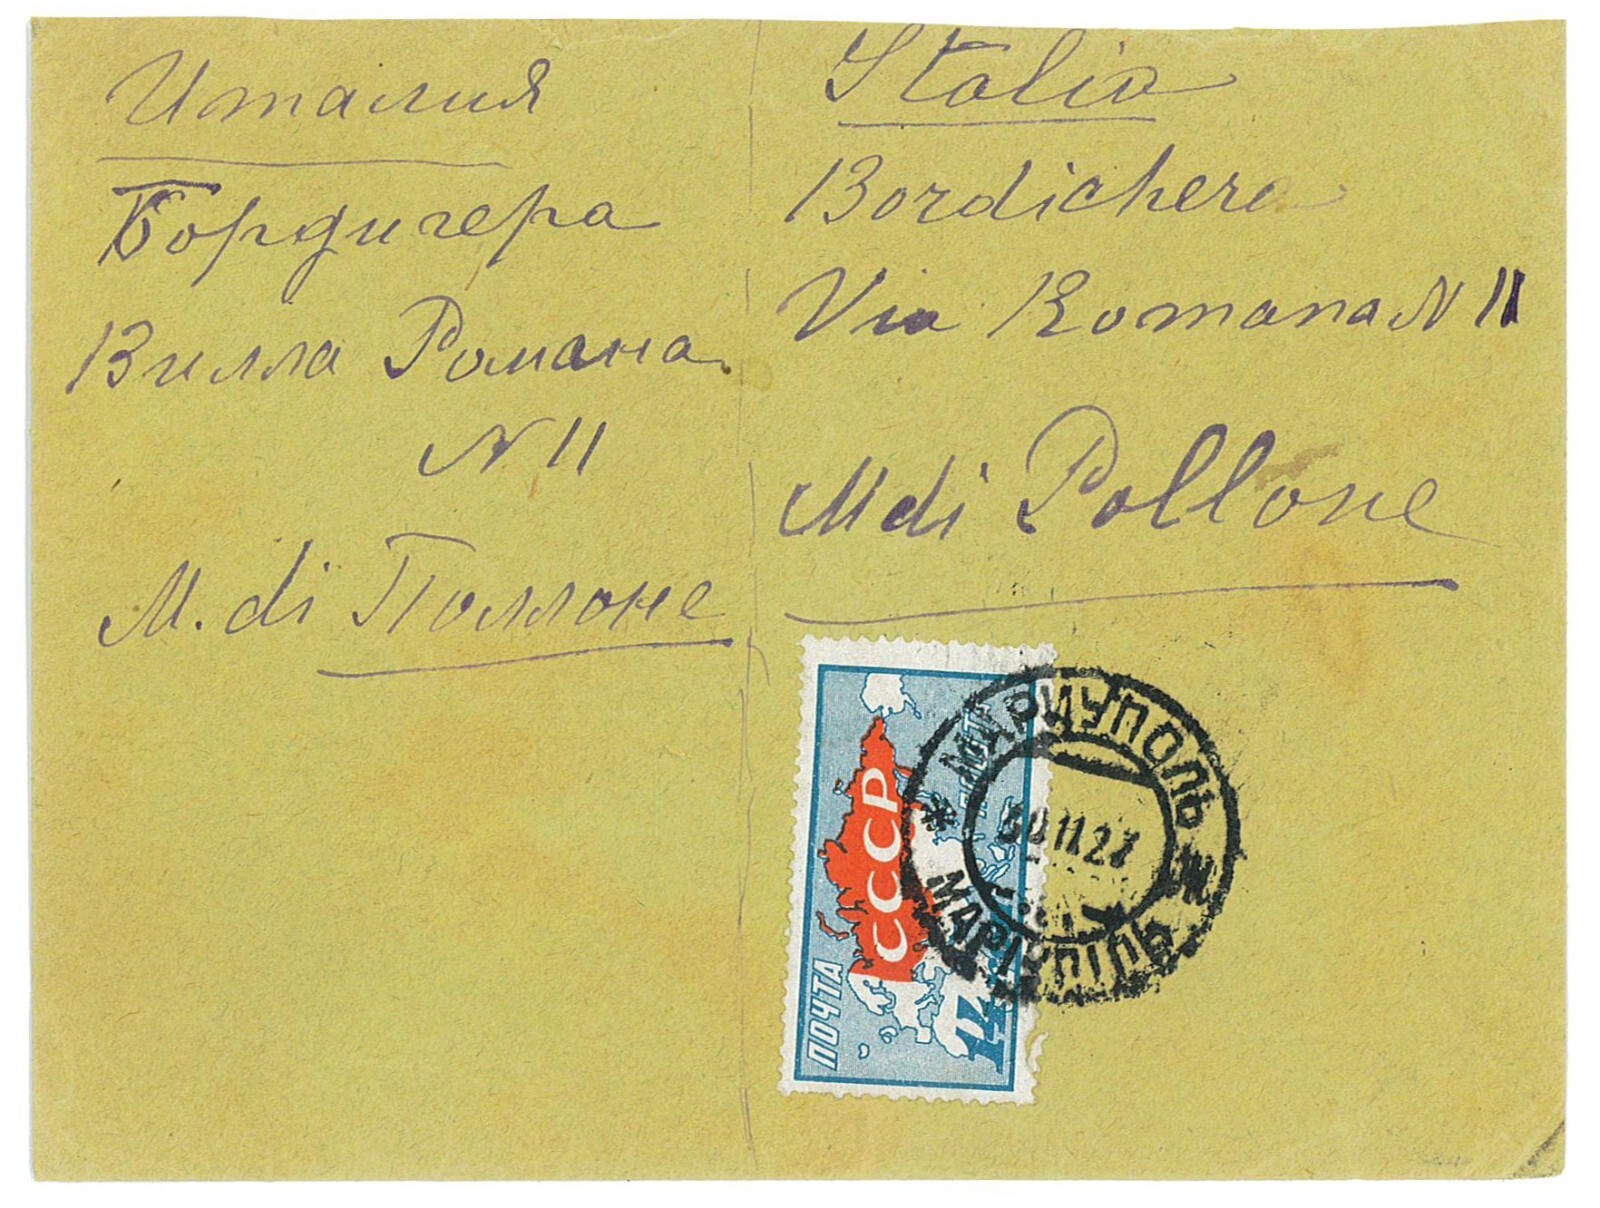 Италия
Бордигера
Вилла Романа
N 11
M. di Поллоне
Italia
Bordichera
Via Romana N 11
M di Pollone
ПОЧТА
СССР
14
МАРИУПОЛЬ
11.27
МАРІУПІЛЬ